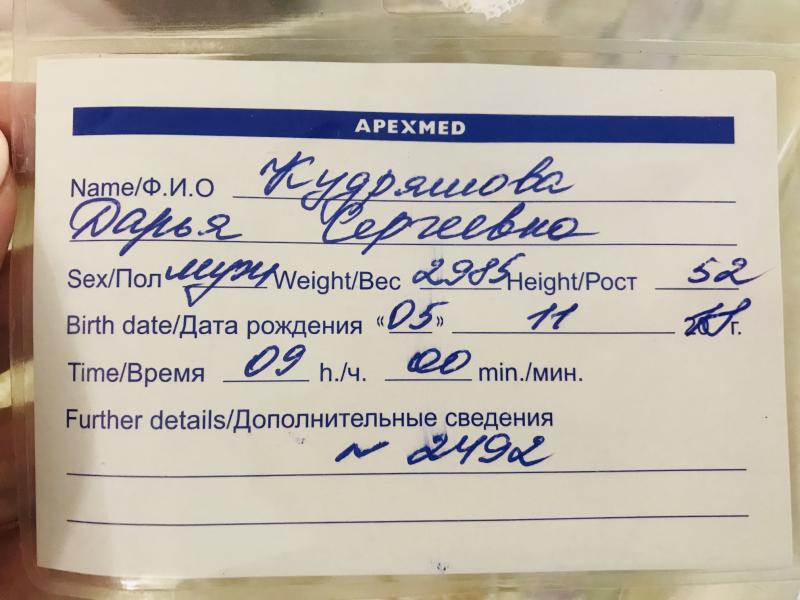 APEXMED
Name/Ф.И.О Кудряшова
Дарья Сергеевна
Sex/Пол муж Weight/Вес 2985 Height/Рост 52
Birth date/Дата рождения «05» 11 г.
Time/Время 09 h./ч. 00 min./мин.
Further details/Дополнительные сведения
~ 2492